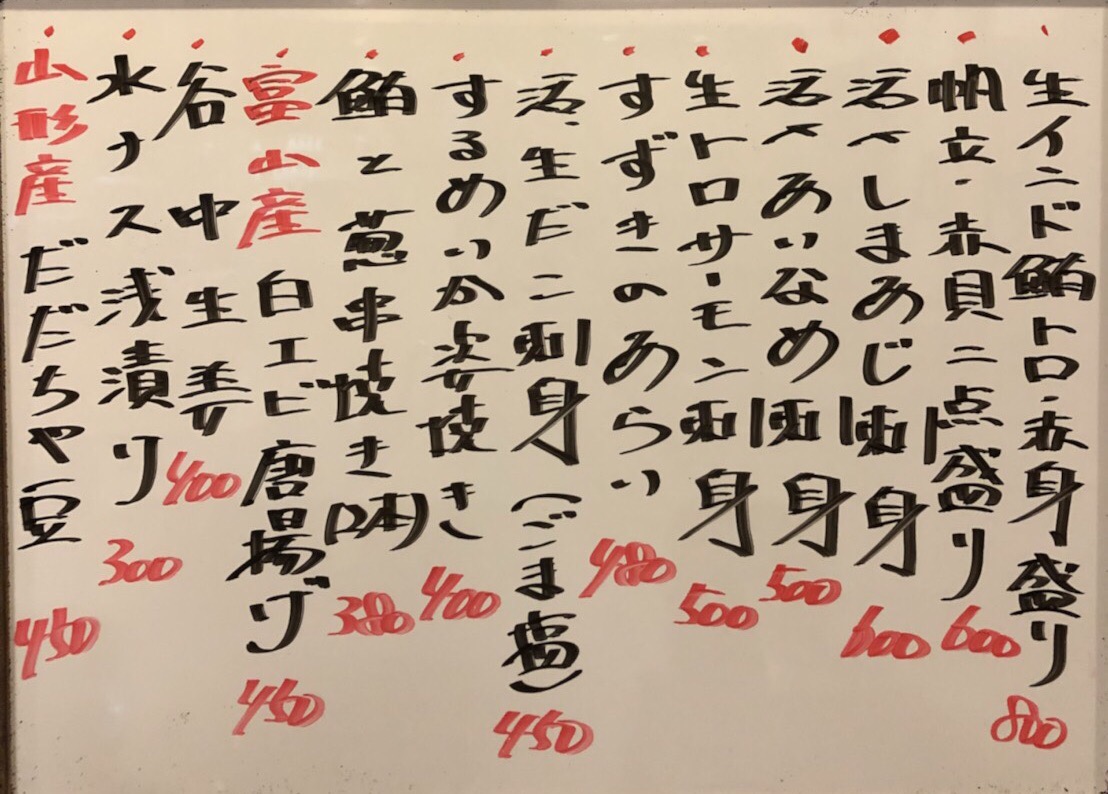 生インド鮪トロ・赤身盛り 800
帆立・赤貝二点盛り 600
活〆しまあじ刺身 600
活〆あいなめ刺身 500
生トロサーモン刺身 500
すずきのあらい 480
活・生だこ刺身(ごま塩) 450
するめいか姿焼き 400
鮪と葱串焼き(2本) 380
富山産 白エビ唐揚げ 450
谷中生姜 400
水ナス浅漬り 300
山形産 だだちゃ豆 450